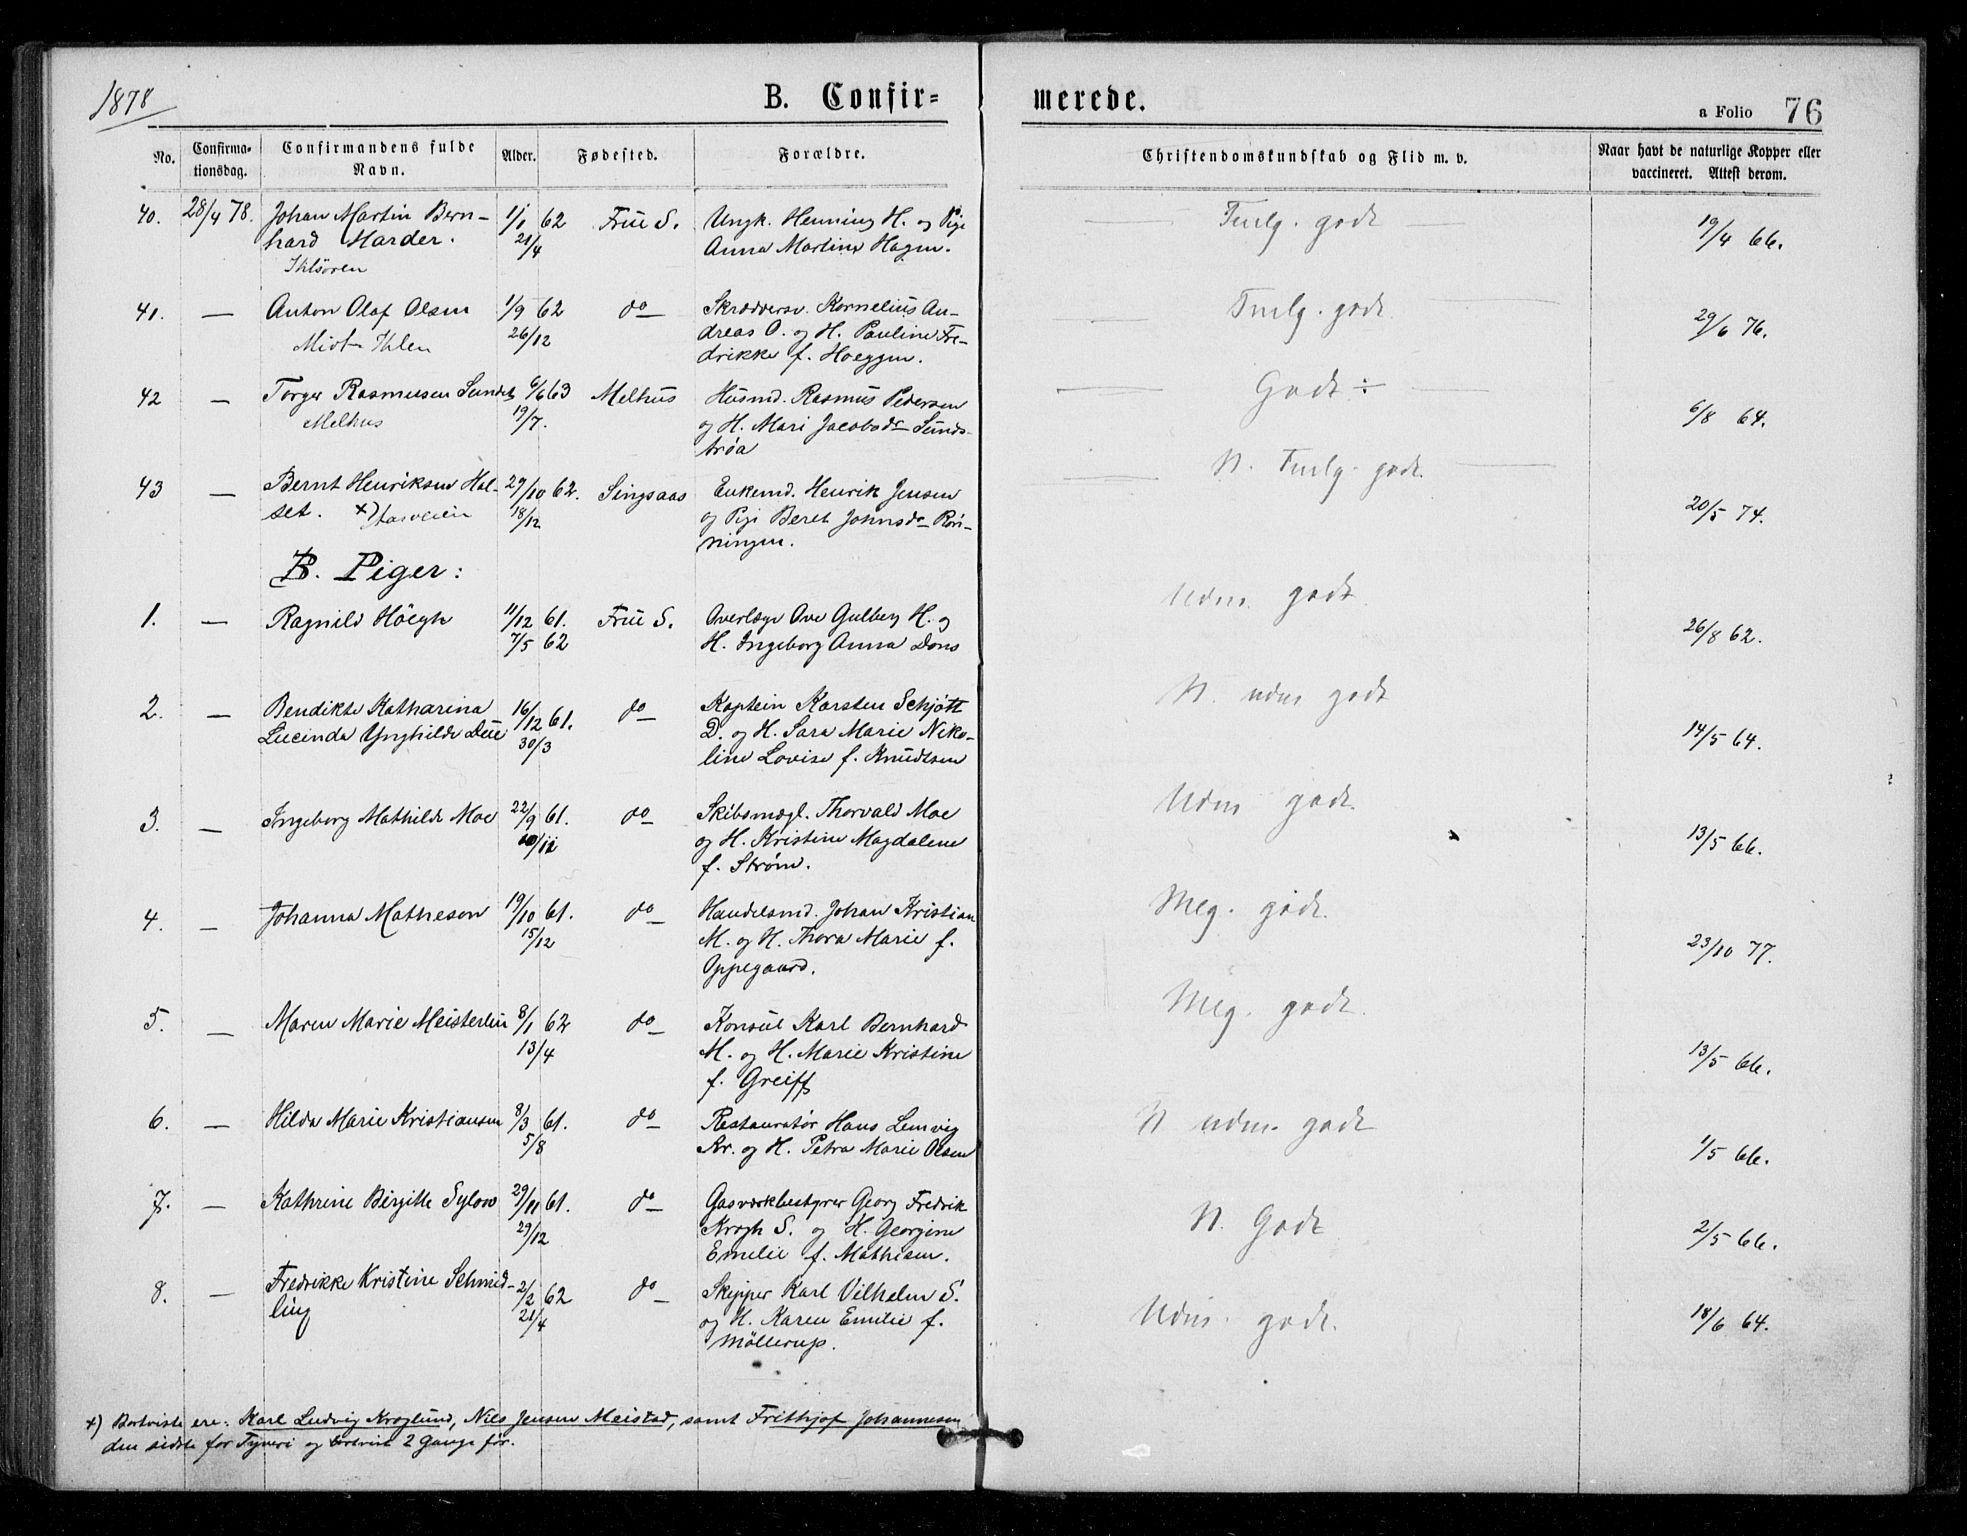 1878
B. Confir= merede.
a Folio 76
No. Confirma-tionsdag. Confirmandens fulde Navn. Alder. Fødested. Forældre. Christendomskundskab og Flid m. v. Naar havt de naturlige Kopper eller vaccineret. Attest derom.
40. 28/4 78. Johan Martin Bern- 1/1 62 Frue S. Ungk. Henning H. og Pige Tmlg. godt 19/4 66.
hard Harder. 21/4 Anna Martine Hagen.
Ihlsøren
41. — Anton Olaf Olsen 1/9 62 do Skrædersv. Kornelius An- Tmlg. godt 29/6 76.
Midt Ihlen 26/12 dreas O. og H. Pauline Fre-
drikke f. Hoeggen.
42 — Torger Rasmusen Sundet 6/6 63 Melhus Husmd. Rasmus Pedersen Godt ÷ 6/8 64.
Melhus 19/7. og H. Mari Jacobsdr Sunds-
trøa
43 — Bernt Henriksen Hal- 29/10 62. Singsaas Enkemd. Henrik Jensen N. Tmlg. godt. 20/5 74.
set. x) 18/12 og Pige Beret Johnsdr Røn-
ningen.
B. Piger:
1. — Ragnild Höegh 11/12 61. Frue S. Overlæge Ove Gulberg H. og Udm. godt 26/8 62.
7/5 62 H. Ingeborg Anna Dons
2. — Bendikte Katharina 16/12 61. do Kaptein Karsten Schjött N. udm godt 14/5 64.
Lucinda Ynghilde Due 30/3 D. og H. Sara Marie Niko-
line Lovise f. Knudtsen
3. — Ingeborg Mathilde Moe 22/9 61. do Skibsmægl. Thorvald Moe Udm godt. 13/5 66.
10/11 og H. Kristine Magdalene
f. Strøm.
4. — Johanna Matheson 19/10 61. do Handelsmd. Johan Kristian Meg. godt. 23/10 77.
15/12 M. og H. Thora Marie f.
Oppegaard.
5. — Maren Marie Meisterlin 8/1 62 do Konsul Karl Bernhard Meg. godt. 13/5 66.
13/4 M. og H. Marie Kristine
f. Greiff
6. — Hilda Marie Kristiansen 8/3 61. do Restauratør Hans Lemvig N udm. godt 1/5 66.
5/8 Kr. og H. Petra Marie Olsen
7. — Kathrine Birgitte Sylow 29/11 61. do Gasværkbestyrer Georg Fredrik N. Godt 2/5 66.
29/12 Krogh S. og H. Georgine
Emelie f. Mathisen.
8. — Fredrikke Kristine Schmid- 2/2 62 do Skipper Karl Vilhelm S. Udm. godt. 18/6 64.
ling 21/4 og H. Karen Emilie f.
Möllerup.
x) Bortviste ere: Karl Ludvig Kroglund, Nils Jensen Meistad, samt Frithjof Johannesen
den sidste for Tyveri og bortvist 2 Gange før.